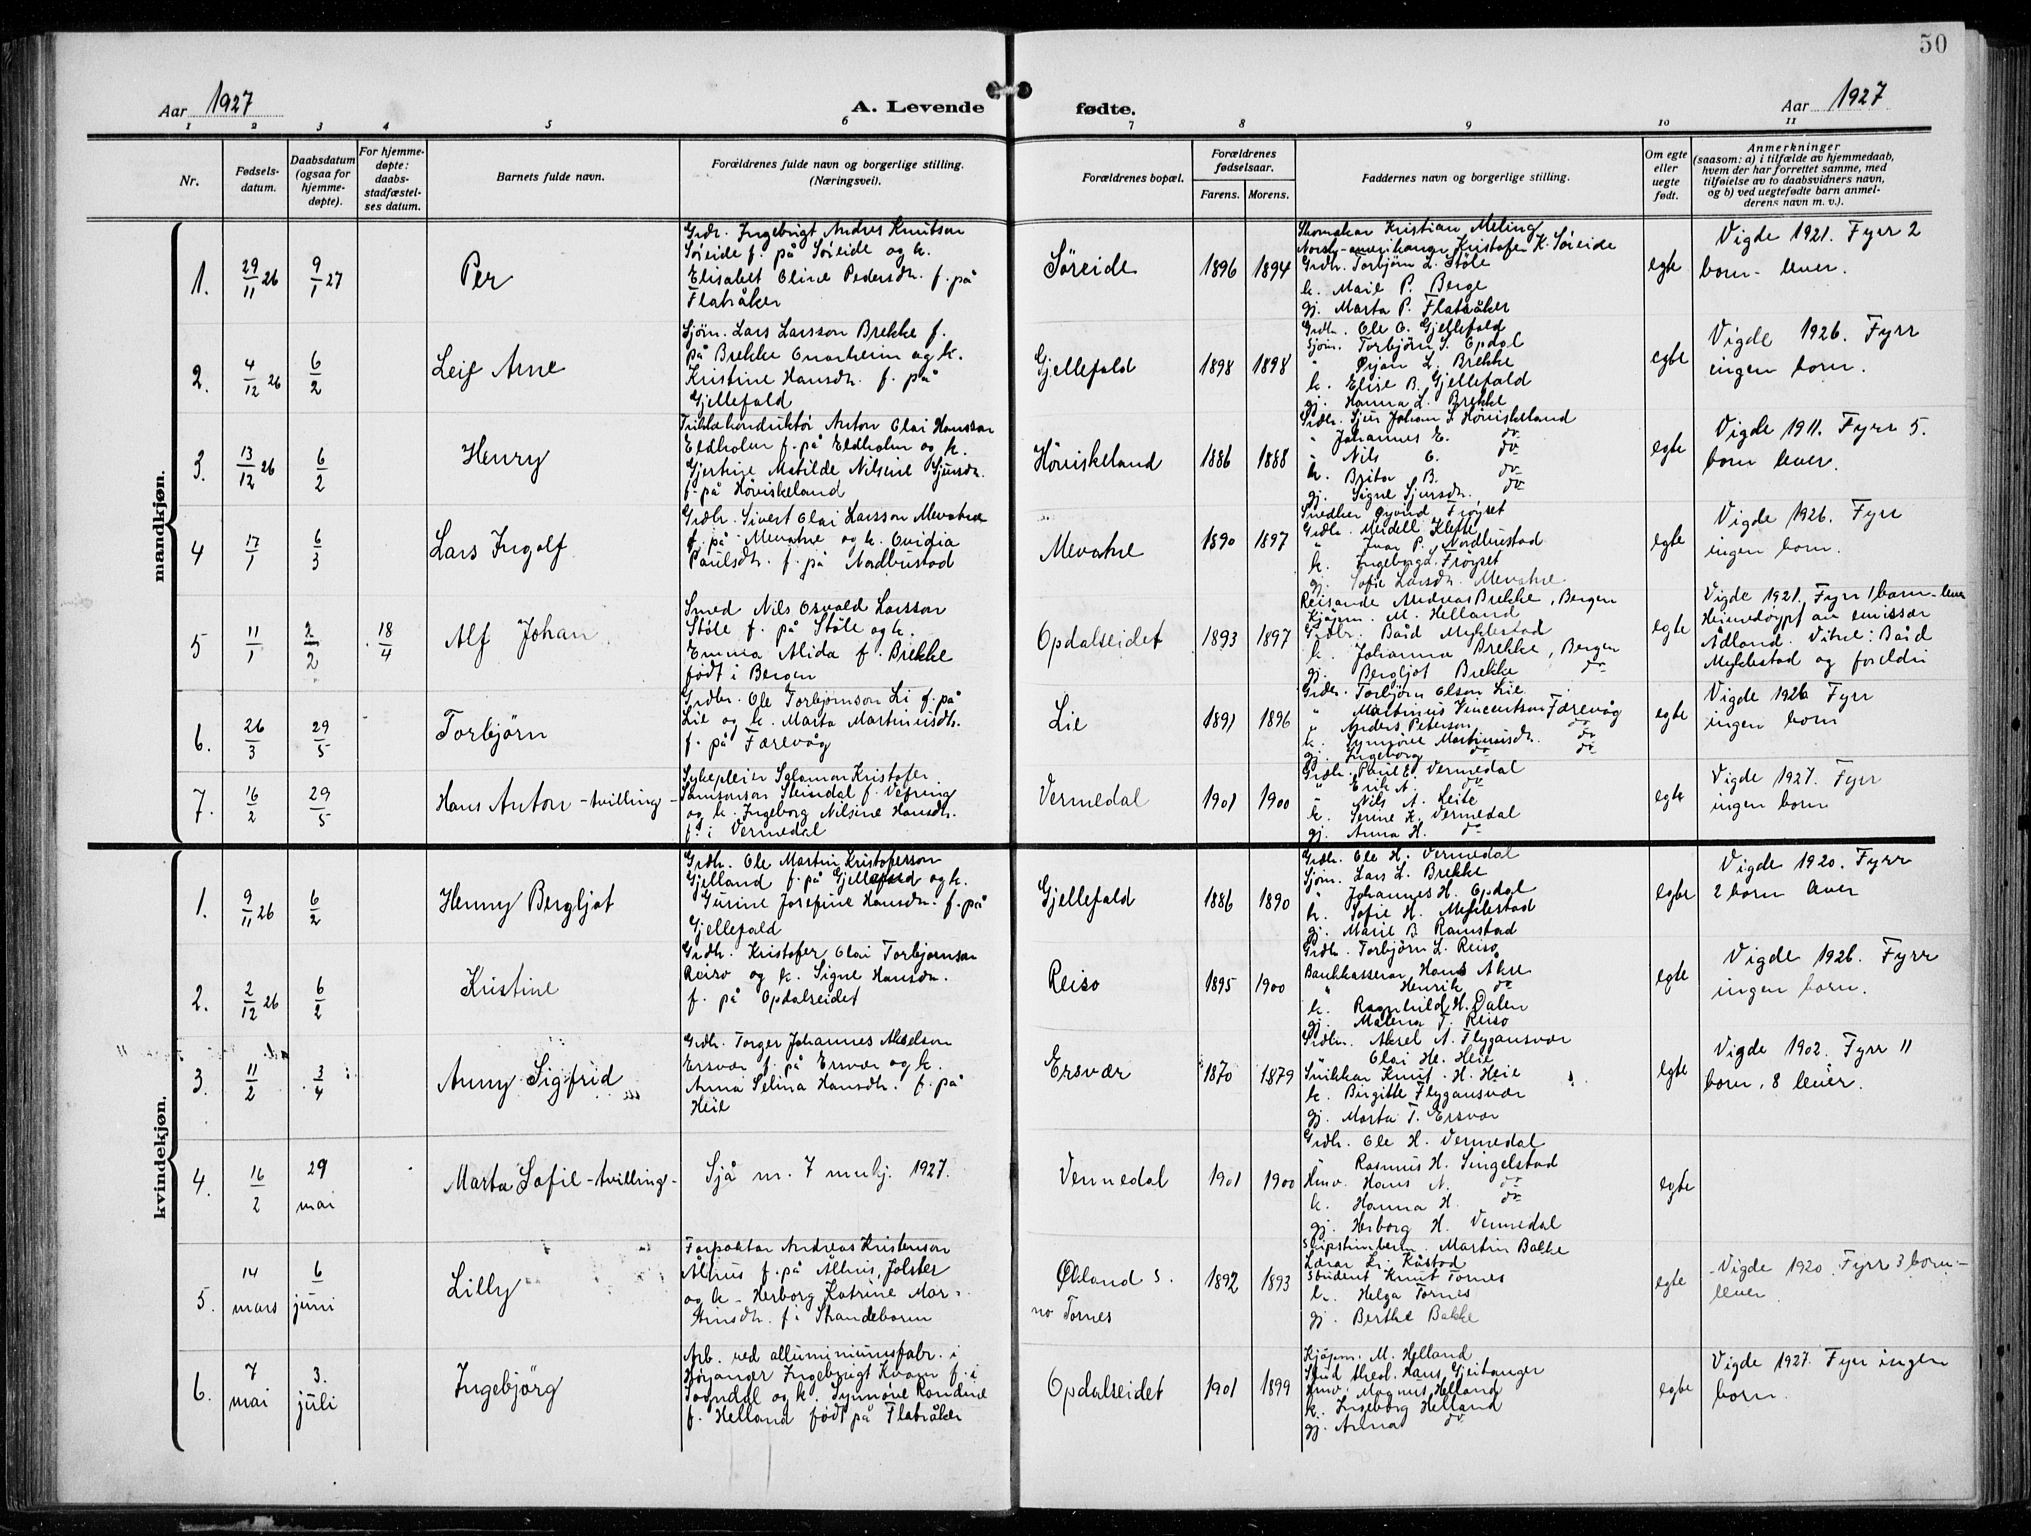 50
Aar 1927
A. Levende
fødte.
Aar 1927
1 2 3 4 5 6 7 8 9 10 11
Nr.
Fødsels-
datum.
Daabsdatum
(ogsaa for
hjemme-
døpte).
For hjemme-
døpte:
daabs-
stadfæstel-
ses datum.
Barnets fulde navn.
Forældrenes fulde navn og borgerlige stilling.
(Næringsvei).
Forældrenes bopæl.
Forældrenes
fødselsaar.
Farens. Morens.
Faddernes navn og borgerlige stilling.
Om egte
eller
uegte
født.
Anmerkninger
(saasom: a) i tilfælde av hjemmedaab,
hvem der har forrettet samme, med
tilføielse av to daabsvidners navn,
og b) ved uegtefødte barn anmel-
derens navn m. v.).
mandkjøn.
1. 29/11 26 9/1 27 Per
Grdbr. Ingebrigt Andres Knutson
Søreide f. på Søreide og k.
Elisabet Oline Pedersdtr. f. på
Flatråker
Søreide 1896 1894
Skomakar Kristian Meling
Norsk-amerikanar Kristofer K. Søreide
Grdbr. Torbjørn L. Støle
k. Marie P. Berge
gj. Marta P. Flatråker
egte
Vigde 1921. Fyrr 2
born - lever.
2. 4/12 26 6/2 Leif Arne
Sjøm. Lars Larsson Brekke f.
på Brekke Onarheim og k.
Kristine Hansdtr. f. på
Gjellefald
Gjellefald 1898 1898
Grdbr. Ole O. Gjellefald
Sjøm. Torbjørn S. Opdal
" Ørjan L. Brekke
k. Elise B. Gjellefald
gj. Hanna L. Brekke
egte
Vigde 1926. Fyrr
ingen born.
3. 13/12 26 6/2 Henry
Trikkekonduktør Anton Olai Hansson
Eldholm f. på Eldholm og k.
Gjertine Matilde Nilsine Sjursdtr.
f. på Høviskeland
Høviskeland 1886 1888
Grdbr. Sjur Johan S. Høviskeland
" Johannes E. do
" Nils O. do
k. Brita B. do
gj. Signe Sjursdtr. do
egte
Vigde 1911. Fyrr 5.
born lever.
4 17/1 6/3 Lars Ingolf
Grdbr. Sivert Olai Larsson Mevatne
f. på Mevatne og k. Ovidia
Paulsdtr. f. på Nordbustad
Mevatne 1890 1897
Snedker Øyvind Frøyset
Grdbr. Meidell Kleppe
" Ivar P. Nordbustad
k. Ingeborga Frøyset
gj. Sofie Larsdtr. Mevatne
egte
Vigde 1926. Fyrr
ingen born.
5 11/1 2/2 18/4 Alf Johan
Smed Nils Osvald Larsson
Støle f. på Støle og k.
Emma Alida f. Brekke
født i Bergen
Opdalseidet 1893 1897
Reisande Andreas Brekke, Bergen
Kjøpm. M. Helland
Grdbr. Bård Myklestad
k. Johanna Brekke, Bergen
gj. Bergljot Brekke do
egte
Vigde 1921. Fyrr 1 born - lever
Heimedøypt av emissær
Ådland. Vitne: Bård
Myklestad og foreldri
6. 26/3 29/5 Torbjørn
Grdbr. Ole Torbjørnson Li f. på
Lie og k. Marta Martinusdtr.
f. på Færevåg
Lie 1891 1896
Grdbr. Torbjørn Olson Lie
" Martinus Vincentson Færevåg
" Anders Peterson do
k. Synnøve Martinusdtr. do
gj. Ingeborg do do
egte
Vigde 1926 Fyrr
ingen born
7. 16/2 29/5 Hans Anton - tvilling -
Sykepleier Salamon Kristofer
Samsonson Steindal f. Vefring
og k. Ingeborg Nilsine Hansdtr.
f. i Vermedal
Vermedal 1901 1900
Grdbr. Paul E. Vermedal
" Erik A. do
" Nils A. Leite
k. Serine K. Vermedal
gj. Anna H. do
egte
Vigde 1927. Fyrr
ingen born
kvindekjøn.
1. 9/11 26 6/2 Henny Bergljot
Grdbr. Ole Martin Kristoferson
Gjelland f. på Gjellefald og k.
Gurine Josefine Hansdtr. f. på
Gjellefald
Gjellefald 1886 1890
Grdbr. Ole H. Vermedal
Sjøm. Lars L. Brekke
" Johannes H. Opdal
k. Sofie H. Myklestad
gj. Marie B. Ramstad
egte
Vigde 1920. Fyrr
2 born lever
2. 2/12 26 6/2 Kristine
Grdbr. Kristofer Olai Torbjørnson
Reisø og k. Signe Hansdtr.
f. på Opdalseidet
Reisø 1895 1900
Grdbr. Torbjørn L. Reisø
Bankkasserar Hans Åkre
" Henrik do
k. Ragnhild H. Dalen
gj. Malena T. Reisø
egte
Vigde 1926. Fyrr
ingen born.
3. 11/2 3/4 Anny Sigfrid
Grdbr. Torger Johannes Akselson
Ersvær f. på Ersvær og k.
Anna Selina Hansdtr. f. på
Heie
Ersvær 1870 1879
Grdbr. Aksel A. Flygansvær
Olai H. Heie
Snikkar Knut H. Heie
k. Birgitte Flygansvær
gj. Marta T. Ersvær
egte
Vigde 1902. Fyrr 11
born, 8 lever.
4. 16/2 29 mai Marta Sofie - tvilling -
Sjå nr. 7 mnkj. 1927.
Vermedal 1901 1900
Grdbr. Ole H. Vermedal
Rasmus H. Singelstad
Umv. Hans A. do
k. Hanna H. do
gj. Herborg H. Vermedal
egte
5. 14 mars 6 juni Lilly
Forpaktar Andreas Kristenson
Ålhus f. på Ålhus, Jølster
og k. Herborg Katrine Mar-
tinsdtr. f. i Strandebarm
Økland s.
no Tornes
1892 1893
Skipstimberm. Martin Bakke
Lærar L. Kåstad
Student Knut Tornes
k. Helga Tornes
gj. Berthe Bakke
egte
Vigde 1920. Fyrr 3 born -
lever.
6. 7 mai 3. juli Ingebjörg
Arb. ved alluminiumsfabr. i
Høyanger Ingebrigt Kvam f. i
Sogndal og k. Synnøve Randine
f. Helland født på Flatråker
Opdalseidet 1901 1899
Kjøpm. M. Helland
Stud theol. Hans Gjeitanger
Umv. Magnus Helland
k. Ingeborg Helland
gj. Anna do
egte
Vigde 1927. Fyrr ingen
born.